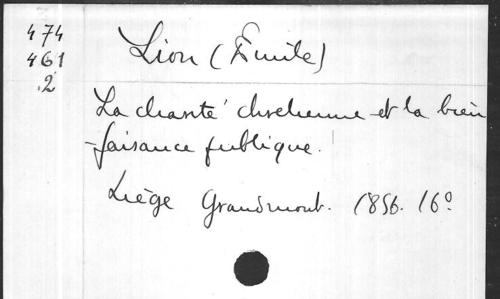 474
461
.2
Lion (Émile)
La charité chrétienne et la bien
-faisance publique.
Liège Grandmont. 1856. 16º